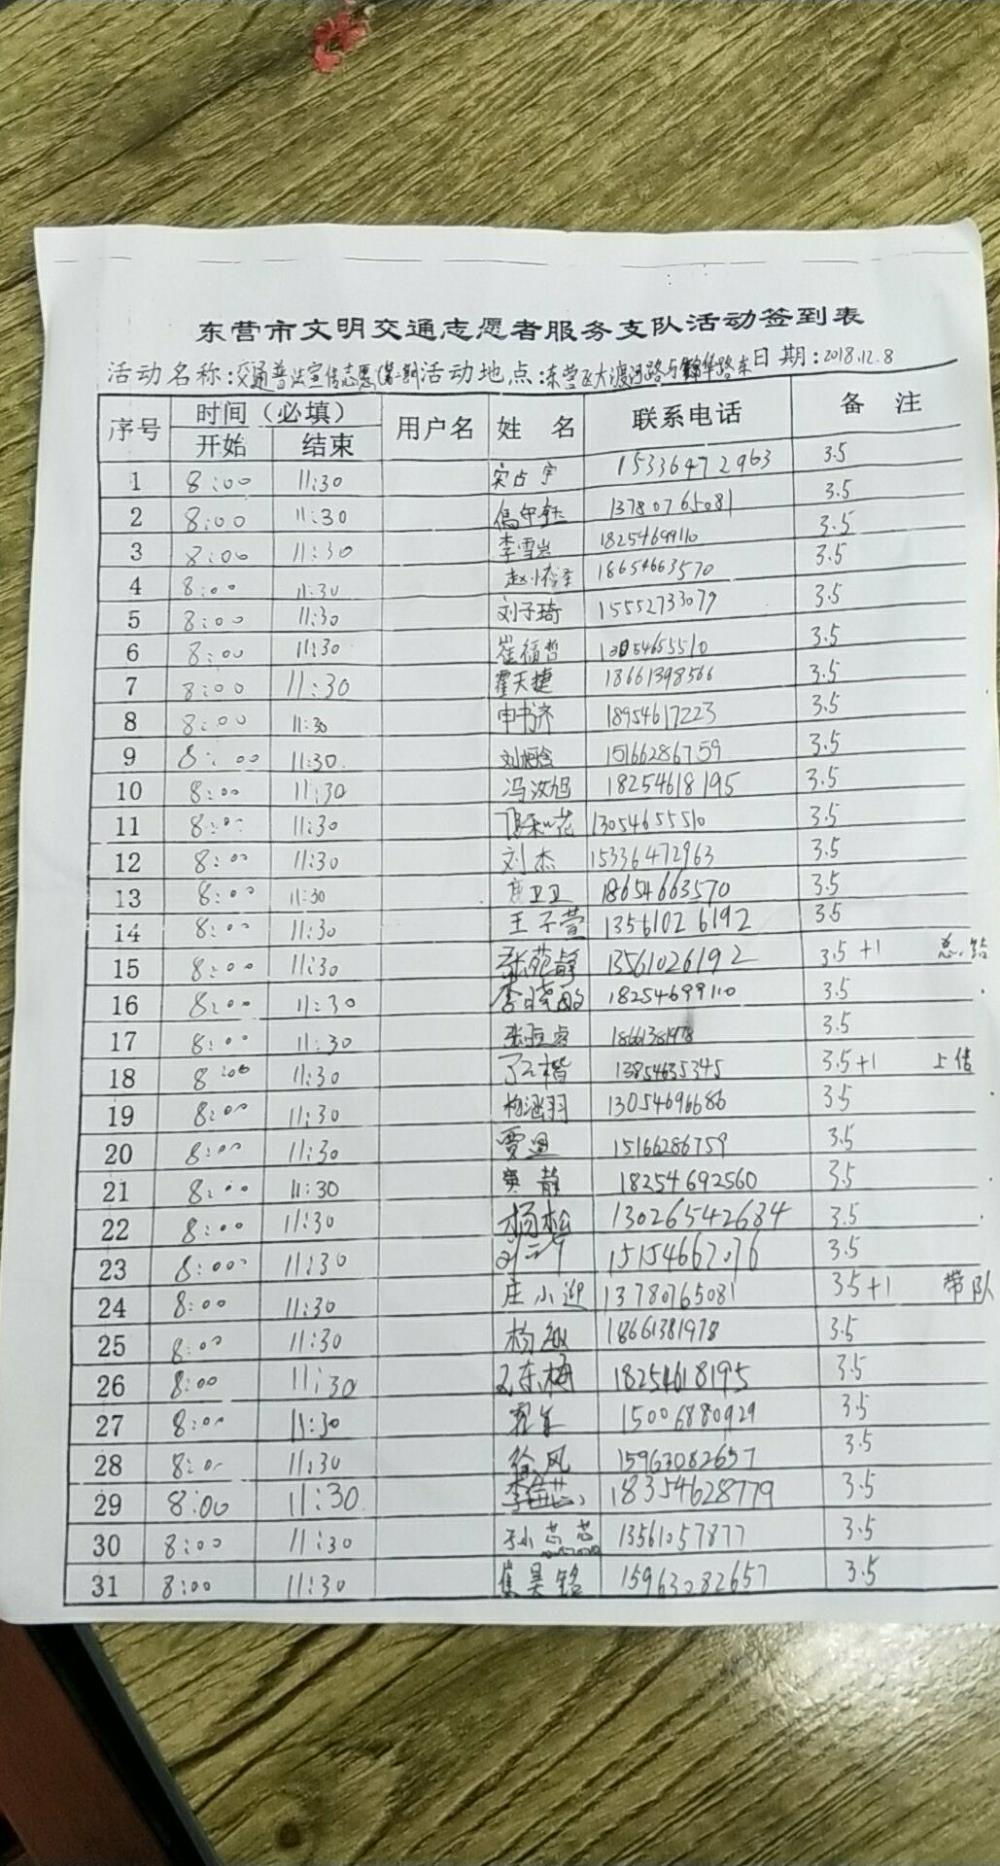 东营市文明交通志愿者服务支队活动签到表
活动名称:交通普法宣传志愿(第一期)活动地点:东营区大渡河路与华路东日期:2018.12.8
序号 时间（必填） 用户名 姓 名 联系电话 备 注
开始 结束
1 8:00 11:30 宋占宇 15336472963 3.5
2 8:00 11:30 13780765081 3.5
3 8:00 11:30 李雪岩 18254699110 3.5
4 8:00 11:30 18654663570 3.5
5 8:00 11:30 刘子琦 15552733079 3.5
6 8:00 11:30 崔福哲 13054655510 3.5
7 8:00 11:30 霍天捷 18661398566 3.5
8 8:00 11:30 申书济 18954617223 3.5
9 8:00 11:30 15166286759 3.5
10 8:00 11:30 冯汝旭 18254618195 3.5
11 8:00 11:30 13054655510 3.5
12 8:00 11:30 刘杰 15336472963 3.5
13 8:00 11:30 18654663570 3.5
14 8:00 11:30 王子萱 13561026192 3.5
15 8:00 11:30 张苑静 13561026192 3.5+1 总结
16 8:00 11:30 李晓敏 18254699110 3.5
17 8:00 11:30 18661381978 3.5
18 8:00 11:30 13854635345 3.5+1 上传
19 8:00 11:30 杨涵羽 13054696686 3.5
20 8:00 11:30 贾迪 15166286759 3.5
21 8:00 11:30 静 18254692560 3.5
22 8:00 11:30 杨松 13026542684 3.5
23 8:00 11:30 15154667076 3.5
24 8:00 11:30 庄小迎 13780765081 3.5+1 带队
25 8:00 11:30 杨 18661381978 3.5
26 8:00 11:30 王东梅 18254618195 3.5
27 8:00 11:30 15006880929 3.5
28 8:00 11:30 徐风 15963082657 3.5
29 8:00 11:30 18354628779 3.5
30 8:00 11:30 孙芯芯 13561057877 3.5
31 8:00 11:30 隽昊铭 15963282657 3.5